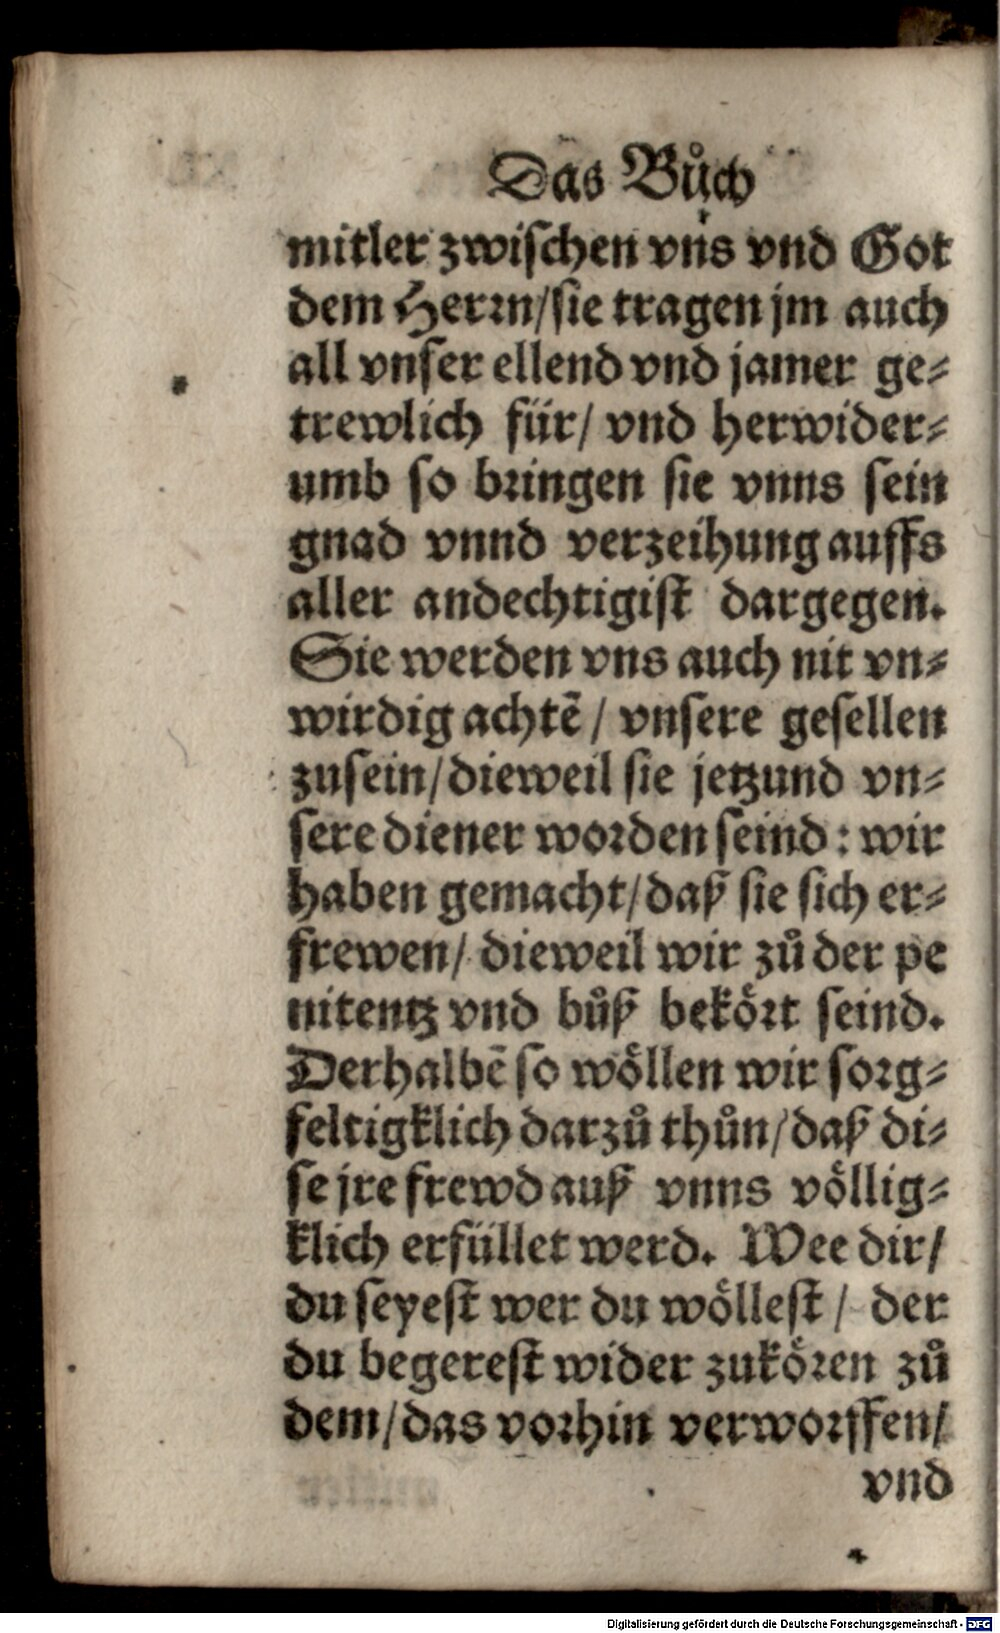 Das Bůch
mitler zwischen vns vnd Got
dem Herrn/sie tragen jm auch
all vnser ellend vnd jamer ge-
trewlich für/ vnd herwider-
umb so bringen sie vnns sein
gnad vnnd verzeihung auffs
aller andechtigist dargegen.
Sie werden vns auch nit vn-
wirdig achtē/ vnsere gesellen
zusein/dieweil sie jetzund vn-
sere diener worden seind: wir
haben gemacht/daß sie sich er-
frewen/ dieweil wir zů der pe
nitentz vnd bůß bekört seind.
Derhalbē so wöllen wir sorg-
feltigklich darzů thůn/daß di-
se jre frewd auß vnns völlig-
klich erfüllet werd. Wee dir/
du seyest wer du wöllest/ der
du begerest wider zukören zů
dem/das vorhin verworffen/
vnd
Digitalisierung gefördert durch die Deutsche Forschungsgemeinschaft - DFG